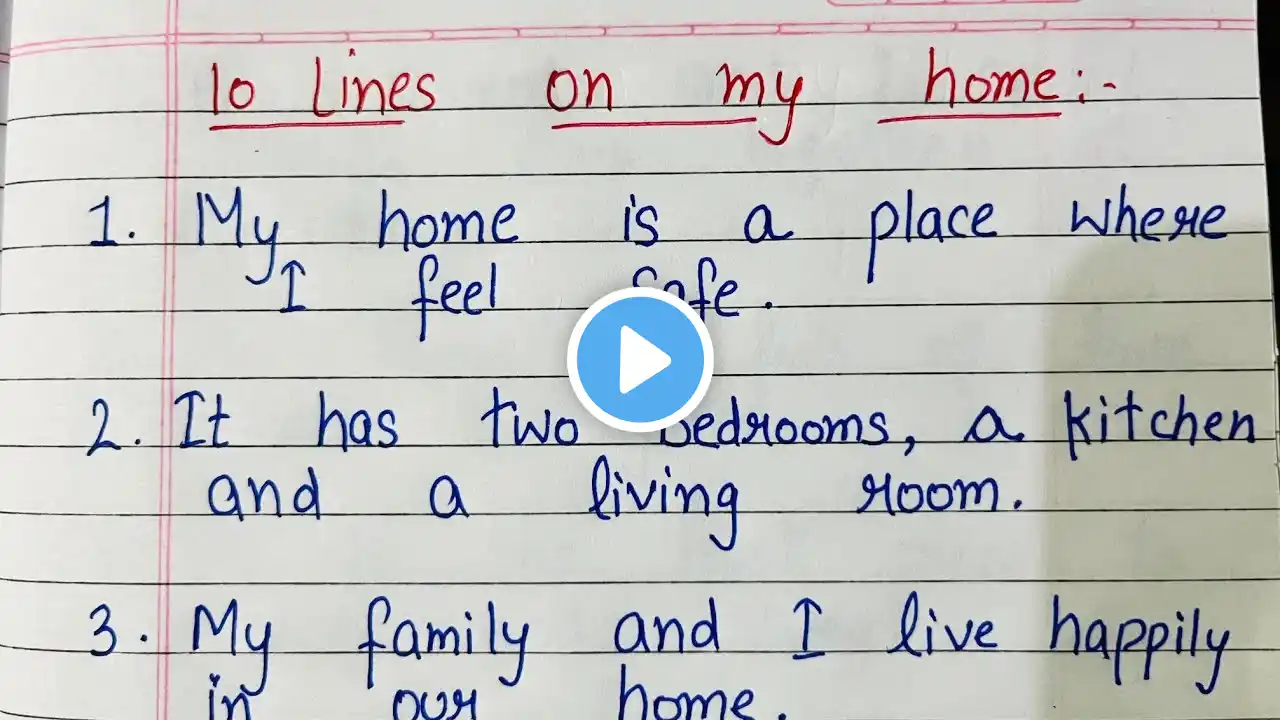 10 Lines on my home:-
1. My home is a place where
I feel safe.
2. It has two bedrooms, a kitchen
and a living room.
3. My family and I live happily
in our home.